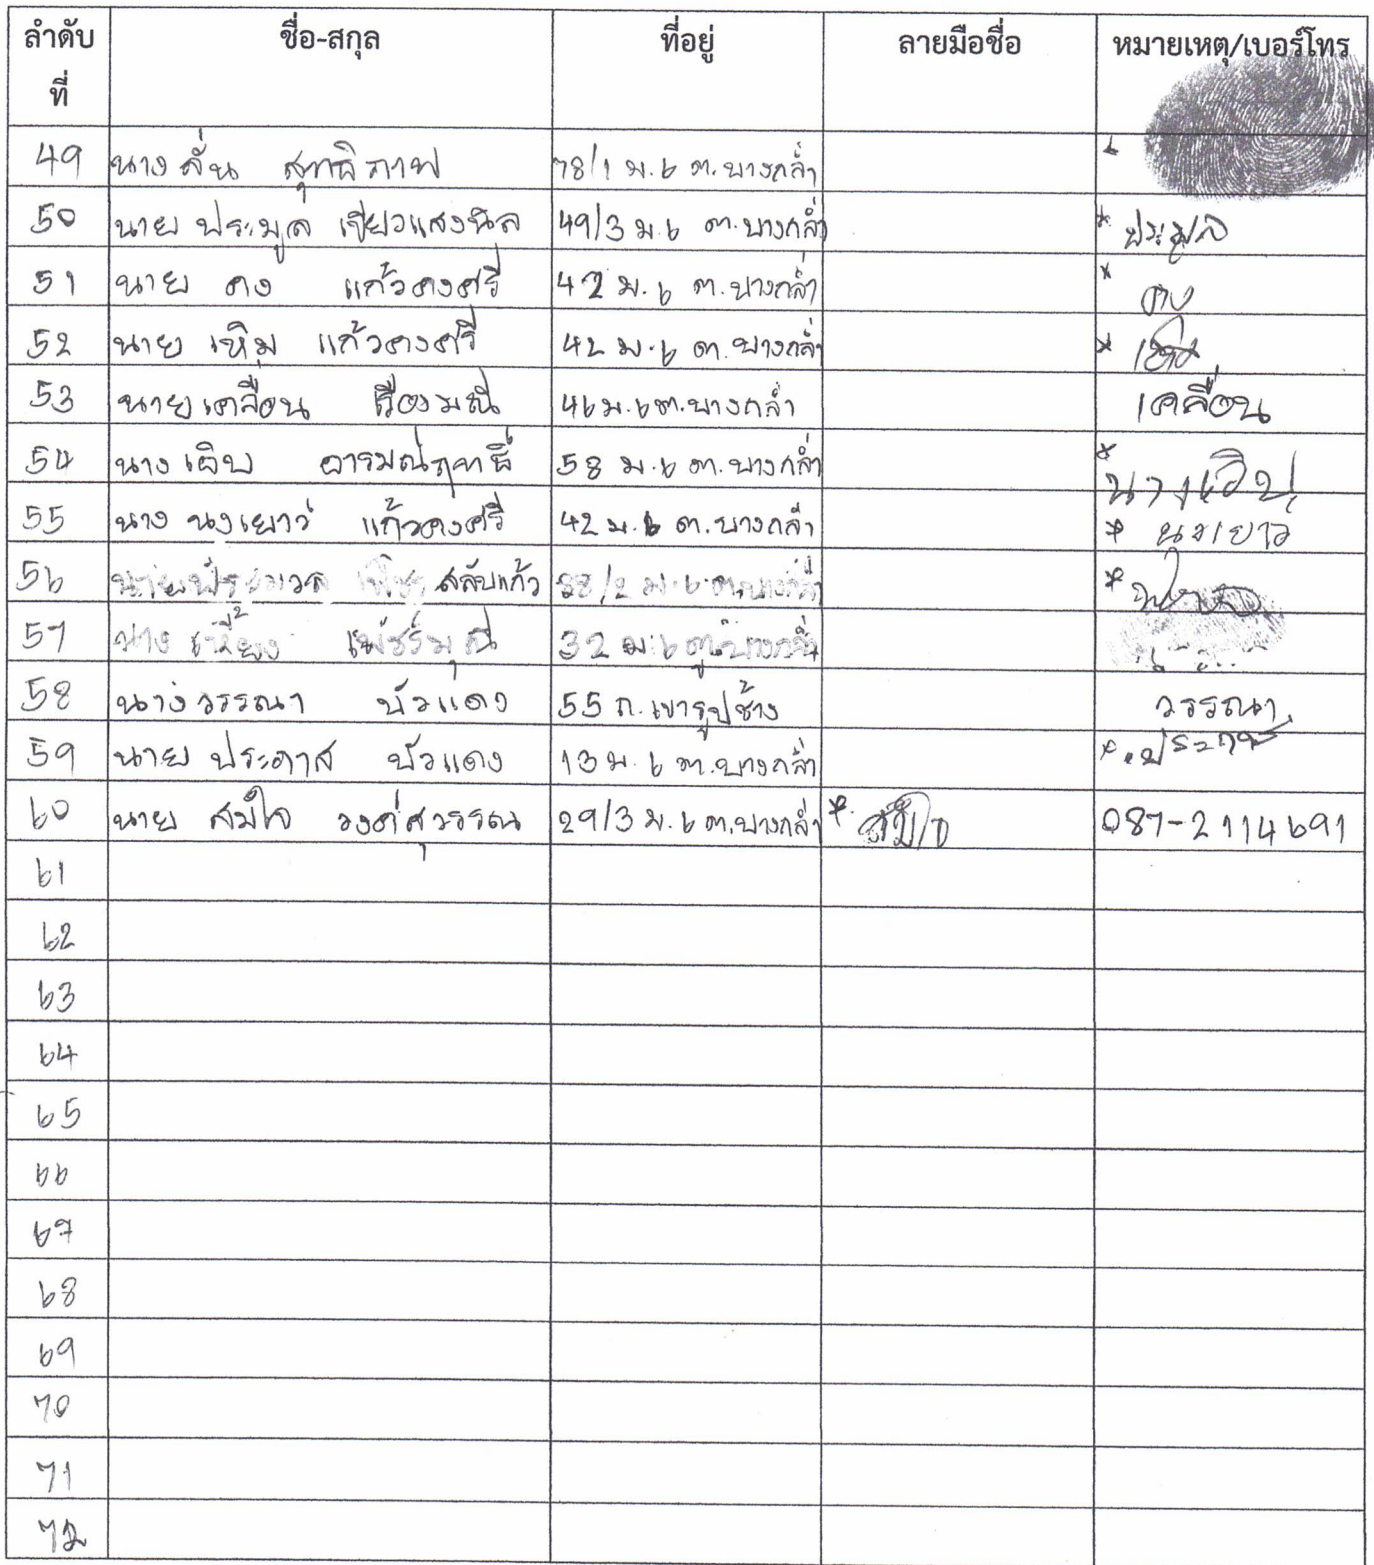 ลำดับที่ ชื่อ-สกุล ที่อยู่ ลายมือชื่อ หมายเหตุ/เบอร์โทร
49 นาง ลั่น สุทธิภาพ 78/1 ม.6 ต.บางกล่ำ
50 นาย ประมูล เขียวแสงนิล 49/3 ม.6 ต.บางกล่ำ * ประมูล
51 นาย คง แก้วคงศรี 42 ม.6 ต.บางกล่ำ * คง
52 นาย เหิม แก้วคงศรี 42 ม.6 ต.บางกล่ำ *
53 นาย เคลื่อน เรืองมณี 46 ม.6 ต.บางกล่ำ เคลื่อน
54 นาง เอิบ อารมณ์ฤทธิ์ 58 ม.6 ต.บางกล่ำ * นางเอิบ
55 นาง นงเยาว์ แก้วคงศรี 42 ม.6 ต.บางกล่ำ * นงเยาว
56 สลับแก้ว ม.6 ต.บางกล่ำ *
57 นาง 32 ม.6 ต.บางกล่ำ
58 นาง วรรณา บัวแดง 55 ถ.เขารูปช้าง วรรณา
59 นาย ประกาส บัวแดง 13 ม.6 ต.บางกล่ำ *
60 นาย สมใจ วงศ์สุวรรณ 29/3 ม.6 ต.บางกล่ำ * สมใจ 087-2114691
61
62
63
64
65
66
67
68
69
70
71
72